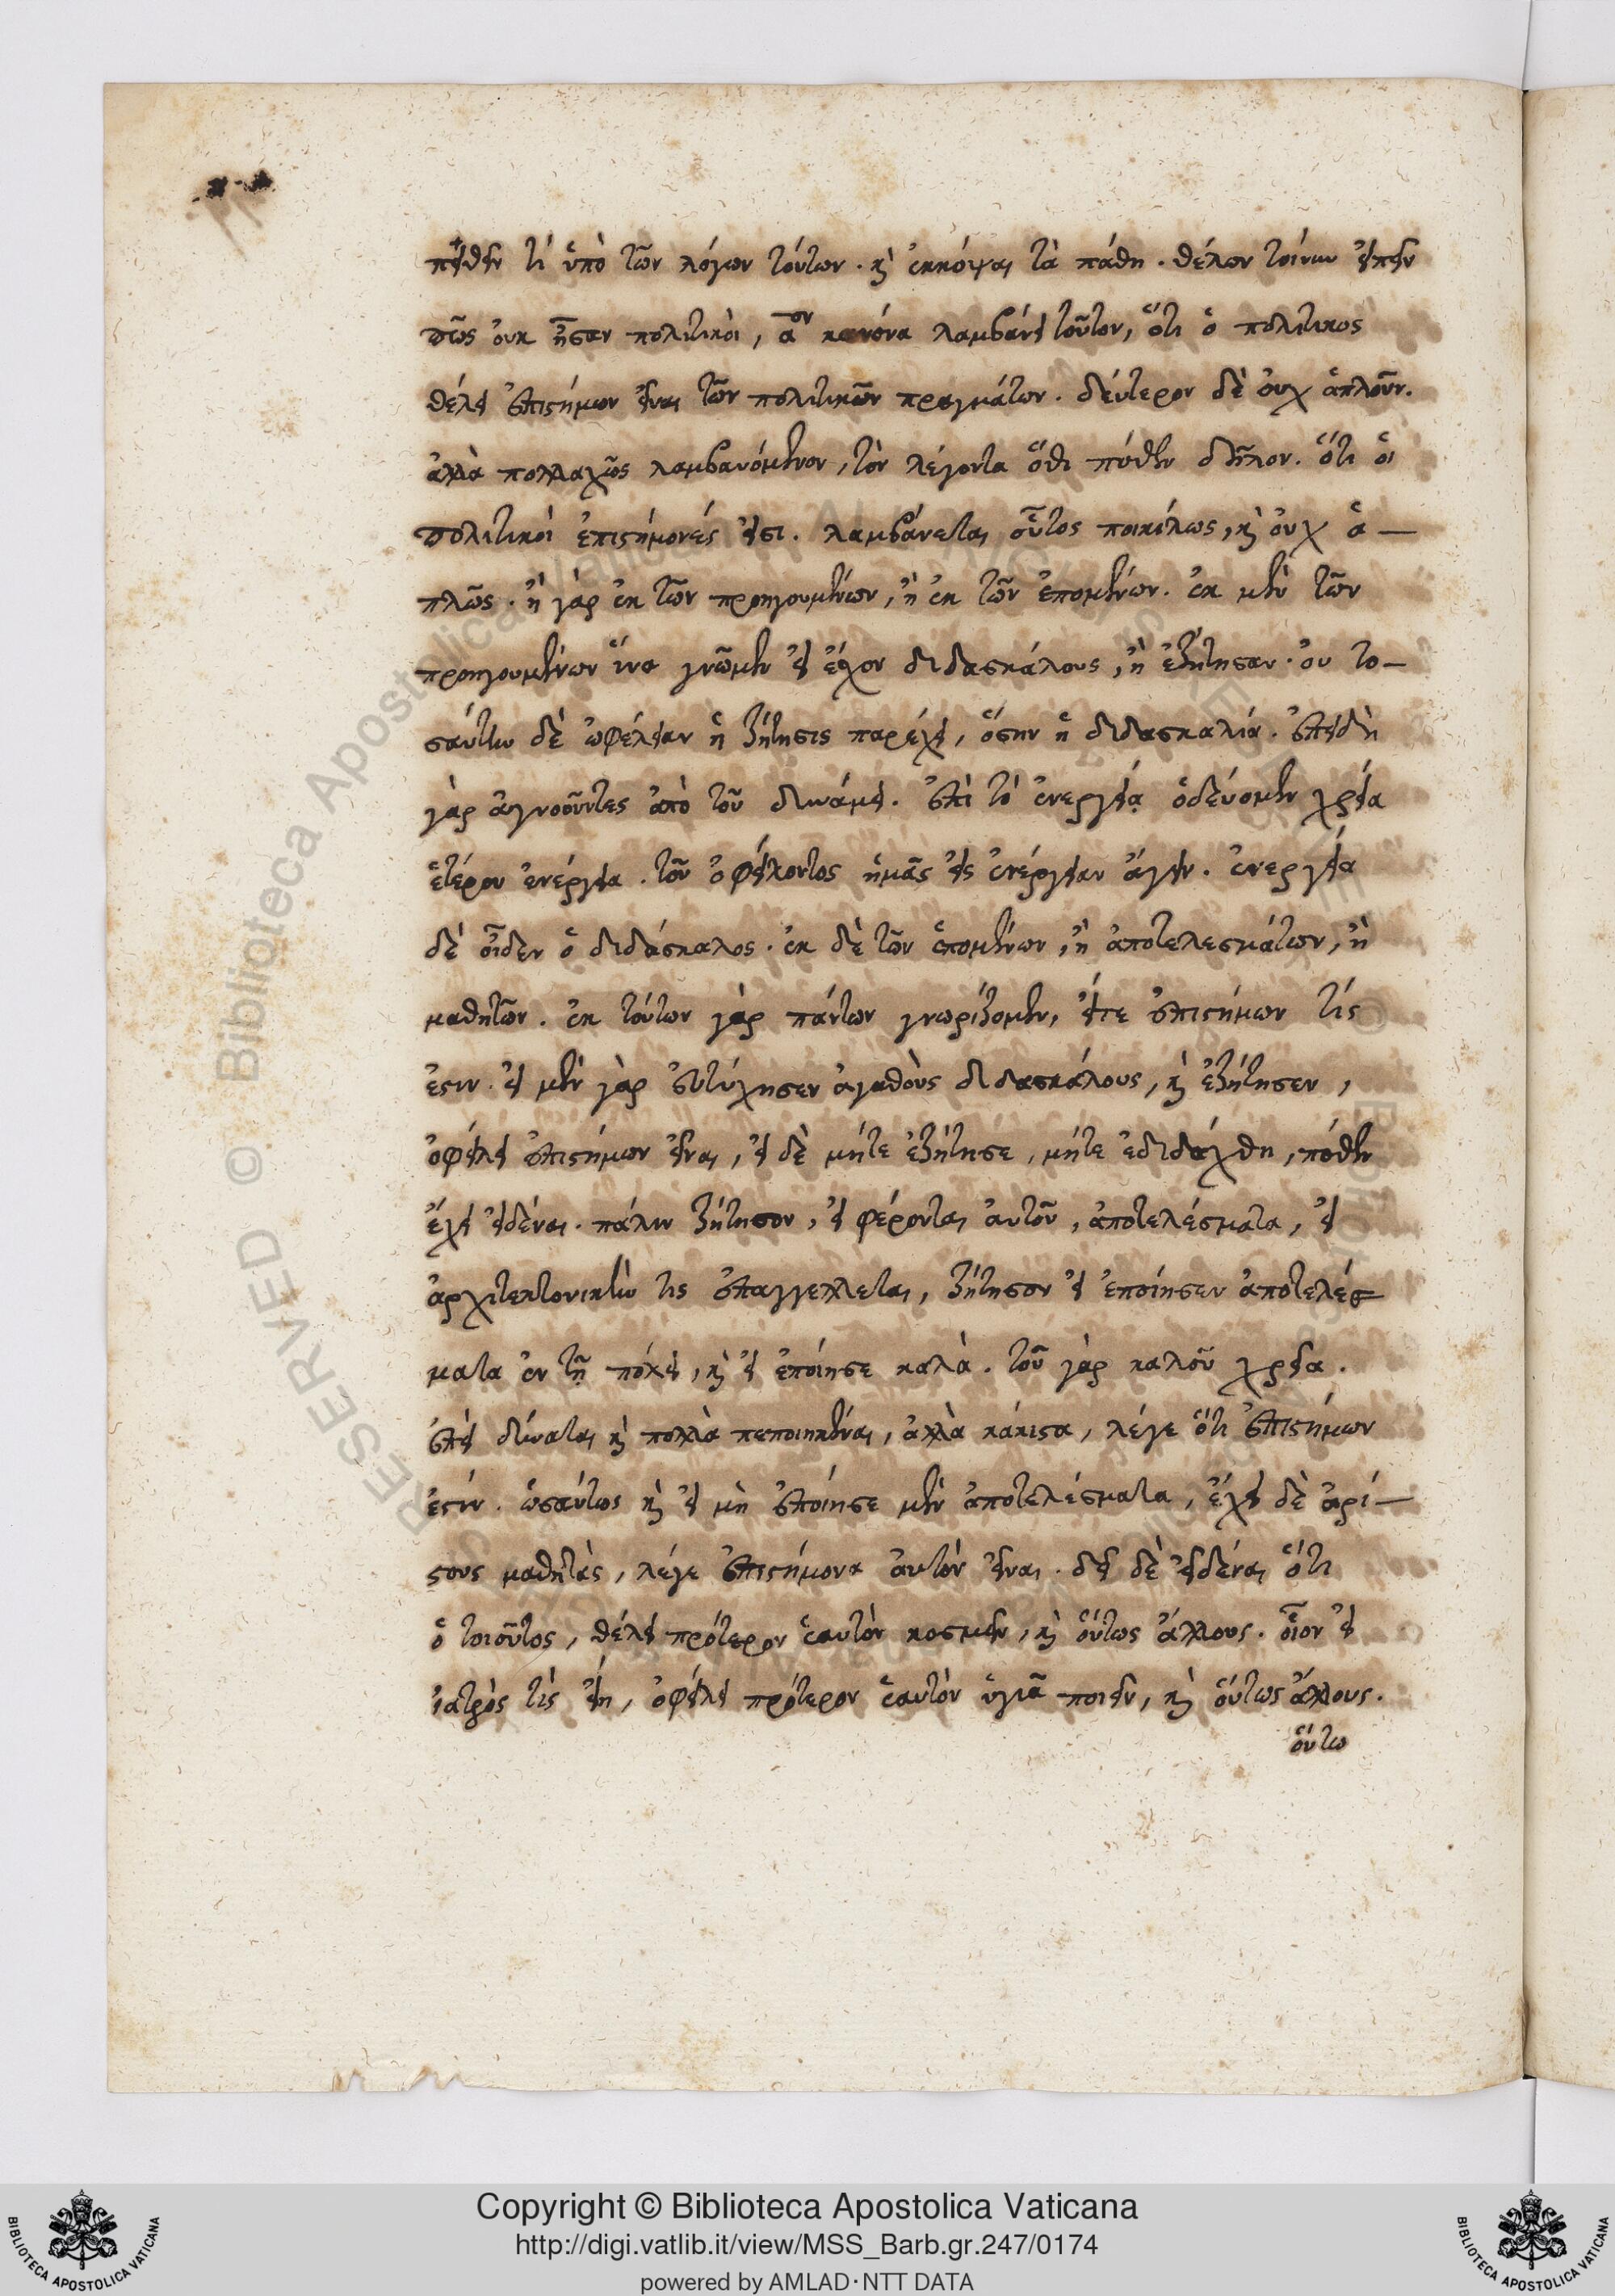 πείθειν τί ὑπὸ τῶν λόγων τούτων. καὶ ἐκκόψαι τὰ πάθη. θέλων τοίνυν εἰπεῖν
πῶς οὐκ ἦσαν πολιτικοὶ, αον κανόνα λαμβάνει τοῦτον, ὅτι ὁ πολιτικος
θέλει ἐπιστήμων εἶναι τῶν πολιτικῶν πραγμάτων. δεύτερον δὲ οὐχ ἁπλοῦν.
ἀλλὰ πολλαχῶς λαμβανόμενον, τὸν λέγοντα ὅθι πόθεν δῆλον. ὅτι οἱ
πολιτικοὶ ἐπιστήμονές εἰσι. λαμβάνεται οὗτος ποικίλως, καὶ οὐχ ἁ-
πλῶς. ἢ γὰρ ἐκ τῶν προηγουμένων, ἢ ἐκ τῶν ἑπομένων. ἐκ μὲν τῶν
προηγουμένων ἵνα γνῶμεν εἰ ἔχον διδασκάλους, ἢ ἐζήτησαν. οὐ το-
σαύτην δὲ ὠφέλειαν ἡ ζήτησις παρέχει, ὅσην ἡ διδασκαλία. ἐπειδὴ
γὰρ ἀγνοοῦντες ἀπὸ τοῦ δυνάμει. ἐπὶ τὸ ἐνεργείᾳ ὁδεύομεν χρεία
ἑτέρου ἐνέργεια. τοῦ ὀφείλοντος ἡμᾶς εἰς ἐνέργειαν ἄγειν. ἐνεργεία
δὲ οἶδεν ὁ διδάσκαλος. ἐκ δὲ τῶν ἑπομένων, ἢ ἀποτελεσμάτων, ἢ
μαθητῶν. ἐκ τούτων γὰρ πάντων γνωρίζομεν, εἴτε ἐπιστήμων τίς
ἐστιν. εἰ μὲν γὰρ εὐτύχησεν ἀγαθοὺς διδασκάλους, καὶ ἐζήτησεν,
ὀφείλει ἐπιστήμων εἶναι, εἰ δὲ μήτε ἐζήτησε, μήτε ἐδιδάχθη, πόθεν
ἔχει εἰδέναι. πάλιν ζήτησον, εἰ φέρονται αὐτοῦ, ἀποτελέσματα, εἰ
ἀρχιτεκτονικὴν τις ἐπαγγέλλεται, ζήτησον εἰ ἐποίησεν ἀποτελέσ
ματα ἐν τῇ πόλει, καὶ εἰ ἐποίησε καλὰ. τοῦ γὰρ καλοῦ χρεία.
ἐπεὶ δύναται καὶ πολλὰ πεποιηκέναι, ἀλλὰ κάκιστα, λέγε ὅτι ἐπιστήμων
ἐστίν. ὡσαύτως καὶ εἰ μὴ ἐποίησε μὲν ἀποτελέσματα, ἔχει δὲ ἀρί-
στους μαθητὰς, λέγε ἐπιστήμονα αὐτὸν εἶναι. δεῖ δὲ εἰδέναι ὅτι
ὁ τοιοῦτος, θέλει πρότερον ἑαυτὸν κοσμεῖν, καὶ οὕτως ἄλλους. οἷον εἰ
ἰατρὸς τὶς εἴη, ὀφείλει πρότερον ἑαυτὸν ὑγιᾶ ποιεῖν, καὶ οὕτως ἄλλους.
οὕτω
© Biblioteca Apostolica Vaticana
RESERVED
Copyright © Biblioteca Apostolica Vaticana
http://digi.vatlib.it/view/MSS_Barb.gr.247/0174
powered by AMLAD·NTT DATA
BIBLIOTECA APOSTOLICA VATICANA
BIBLIOTECA APOSTOLICA VATICANA